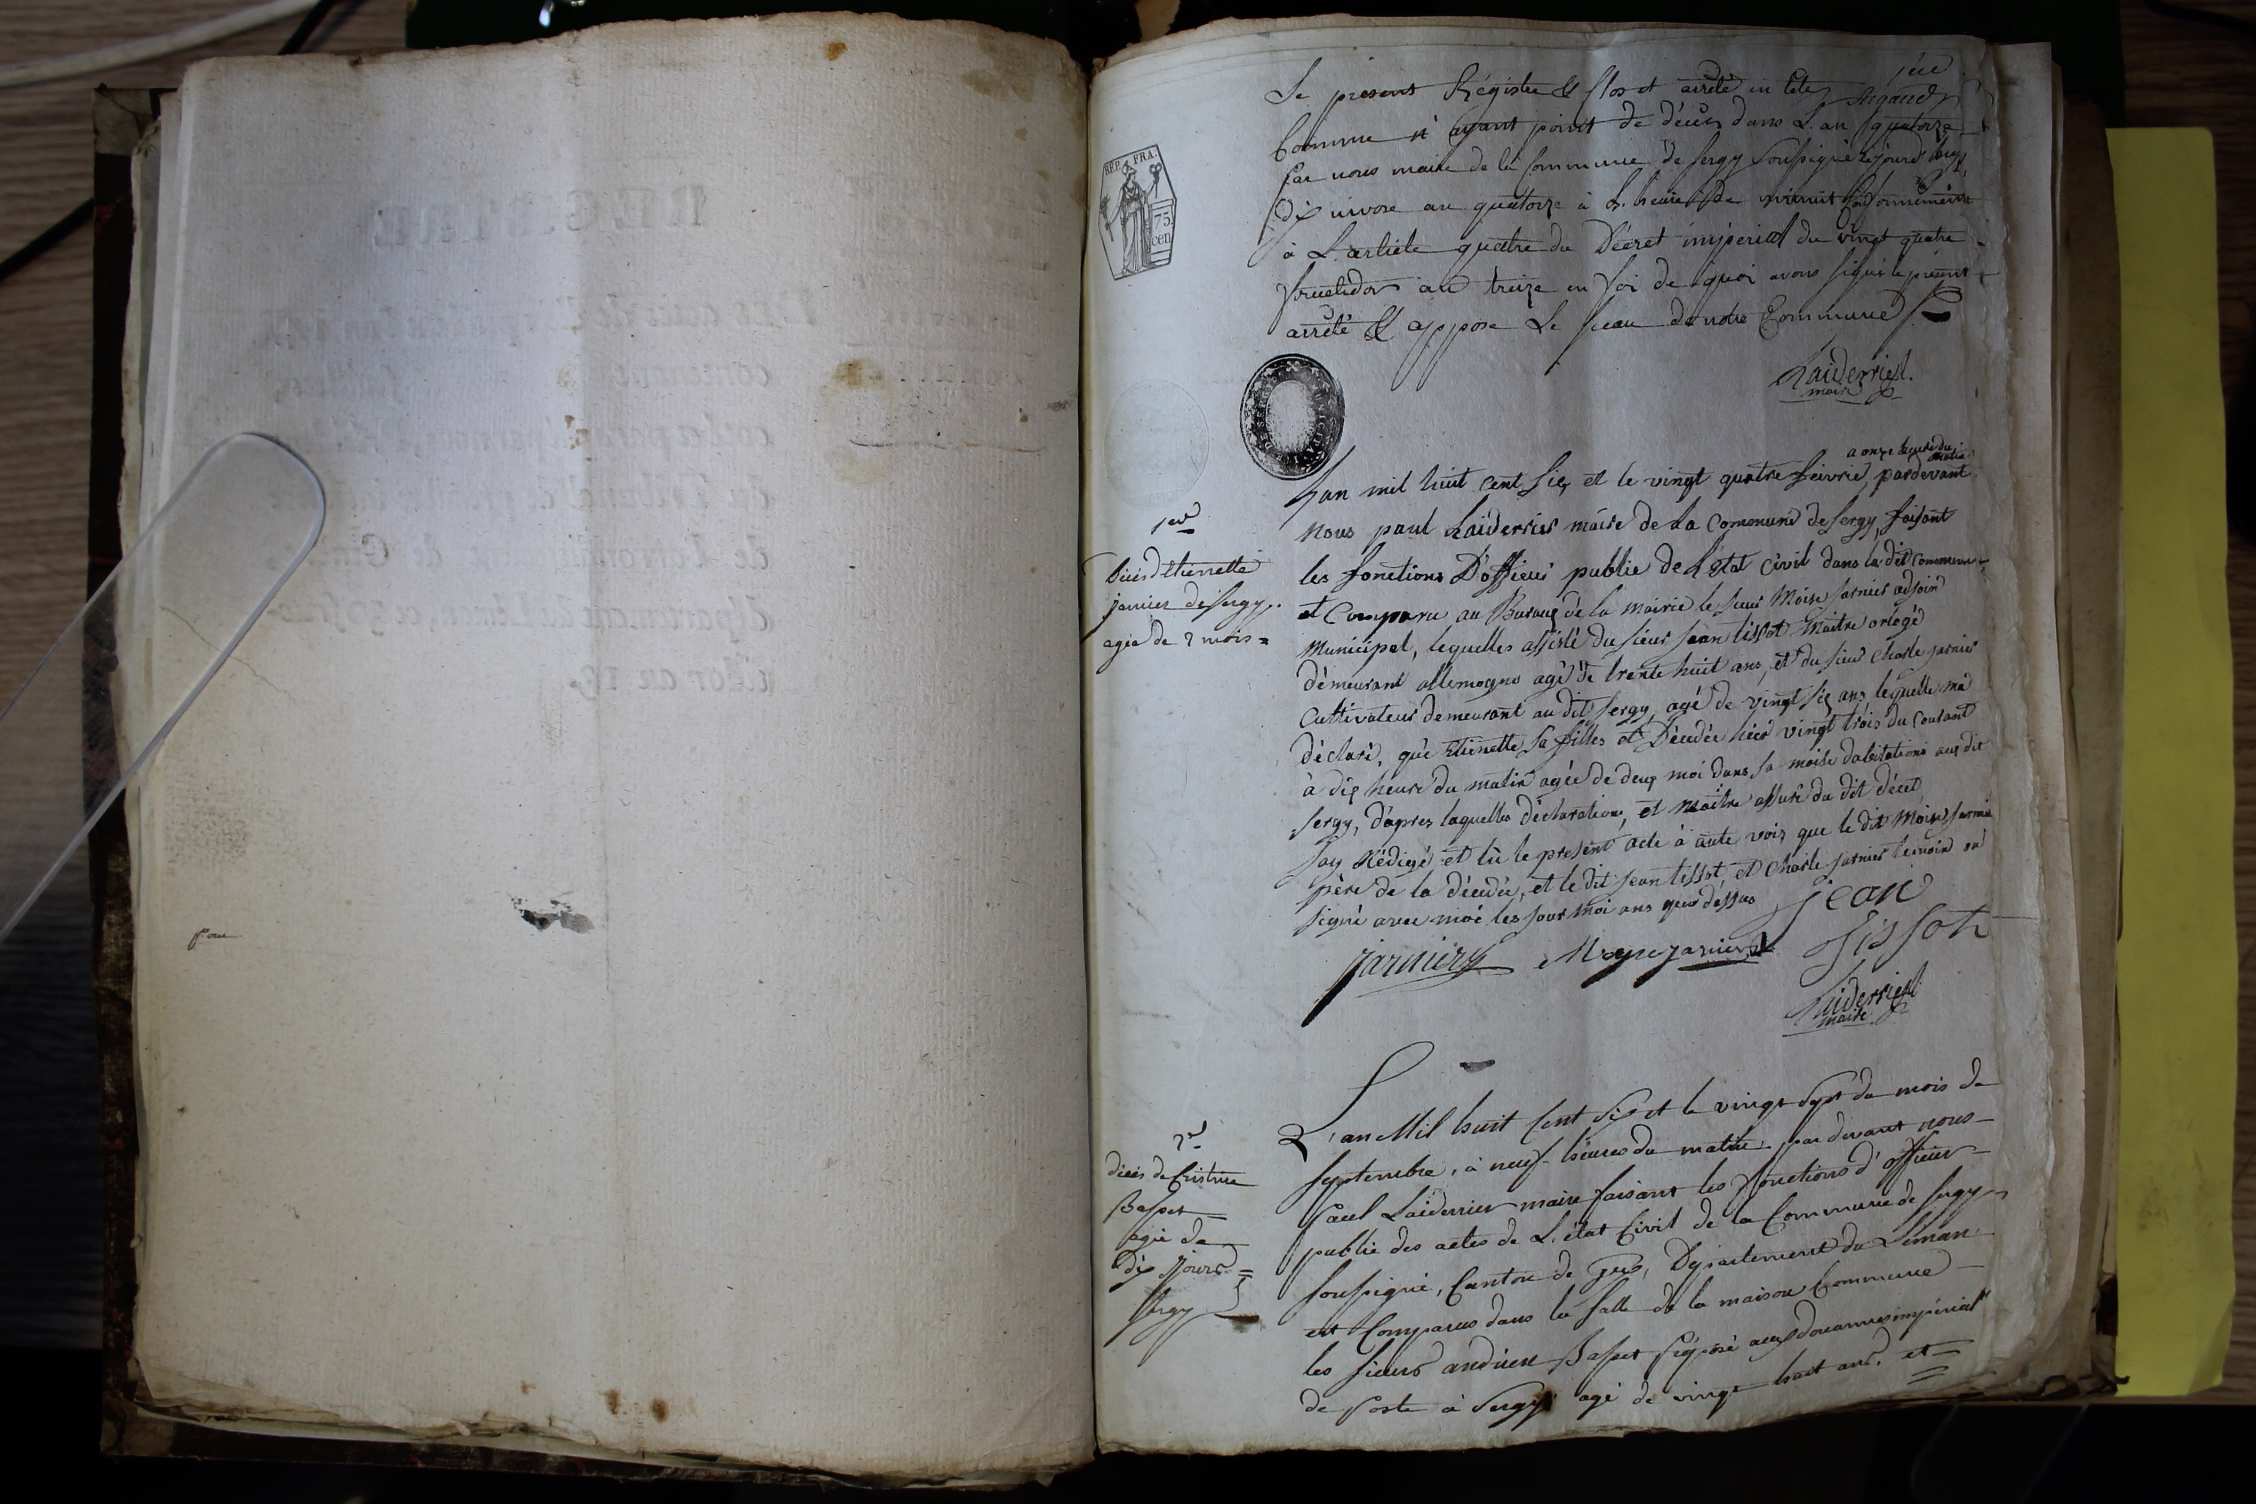 Le present Régistre & Clos et arrêté en tete
Comme n'ayant point de décès dans L'an quatorze
par nous maire de la Commune de Sergy soussigné ce jourd'huy
dix nivose an quatorze à L'heure de minuit Conformément
à L'article quatre du Décret impérial du vingt quatre
fructidor an treize en foi de quoi avons signé le présent
arrêté & apposé Le sceau de notre Commune
REP. FRA.
75
cen
Laiderrier
maire
a onze heure du
matin
Lan mil huit cent six et le vingt quatre feivrié, pardevant
1er
nous paul Laiderrier maire de La Commune de Sergy, faisant
Décès d'étiennette
les fonctions D'officier public de L'état Civil dans la dit commune
janier de Sergy
et Comparu au Buraux de la mairie le sieur Moise Janier adjoin
agée de 2 mois =
municipal, lequelles assisté du sieur Jean tissot maitre orlogé
démeurant allemogne agé de trente huit ans, et du sieur Charle Janier
Cultivateur demeurant au dit Sergy, agé de vingt six ans lequelle mà
déclaré, que Etienette sa filles et Décédée hier vingt trois du Courant
à dix heure du matin agée de deux moi dans sa maise dabitations aux dit
Sergy, d'apres laquelles déclaration, et maitre assuré du dit décet
Jay Rédigé et lù le present acte à aute voix que le dit Moise Janier
père de la décédée, et le dit Jean tissot et Charle Janier temoin on
signé avec moé les jour moi ans que déssus
Janier Moyse janier Jean
Tissot
Laiderrier
maire
L'an Mil huit Cent Six et le vingt sept du mois de
2e
septembre, à neuf heures du matin par devant nous
décès de Cristine
Paul Laiderrier maire faisant les fonctions d'officier
Basset
public des actes de L'état Civil de la Commune de Sergy
agée de
soussigné, Canton de Gex, Département du Léman
dix Jours =
est Comparus dans la salle de la maison Commune
Sergy
les sieurs andrien Basset préposé aux douannes impérial
de poste à Sergy agé de vingt huit ans, et